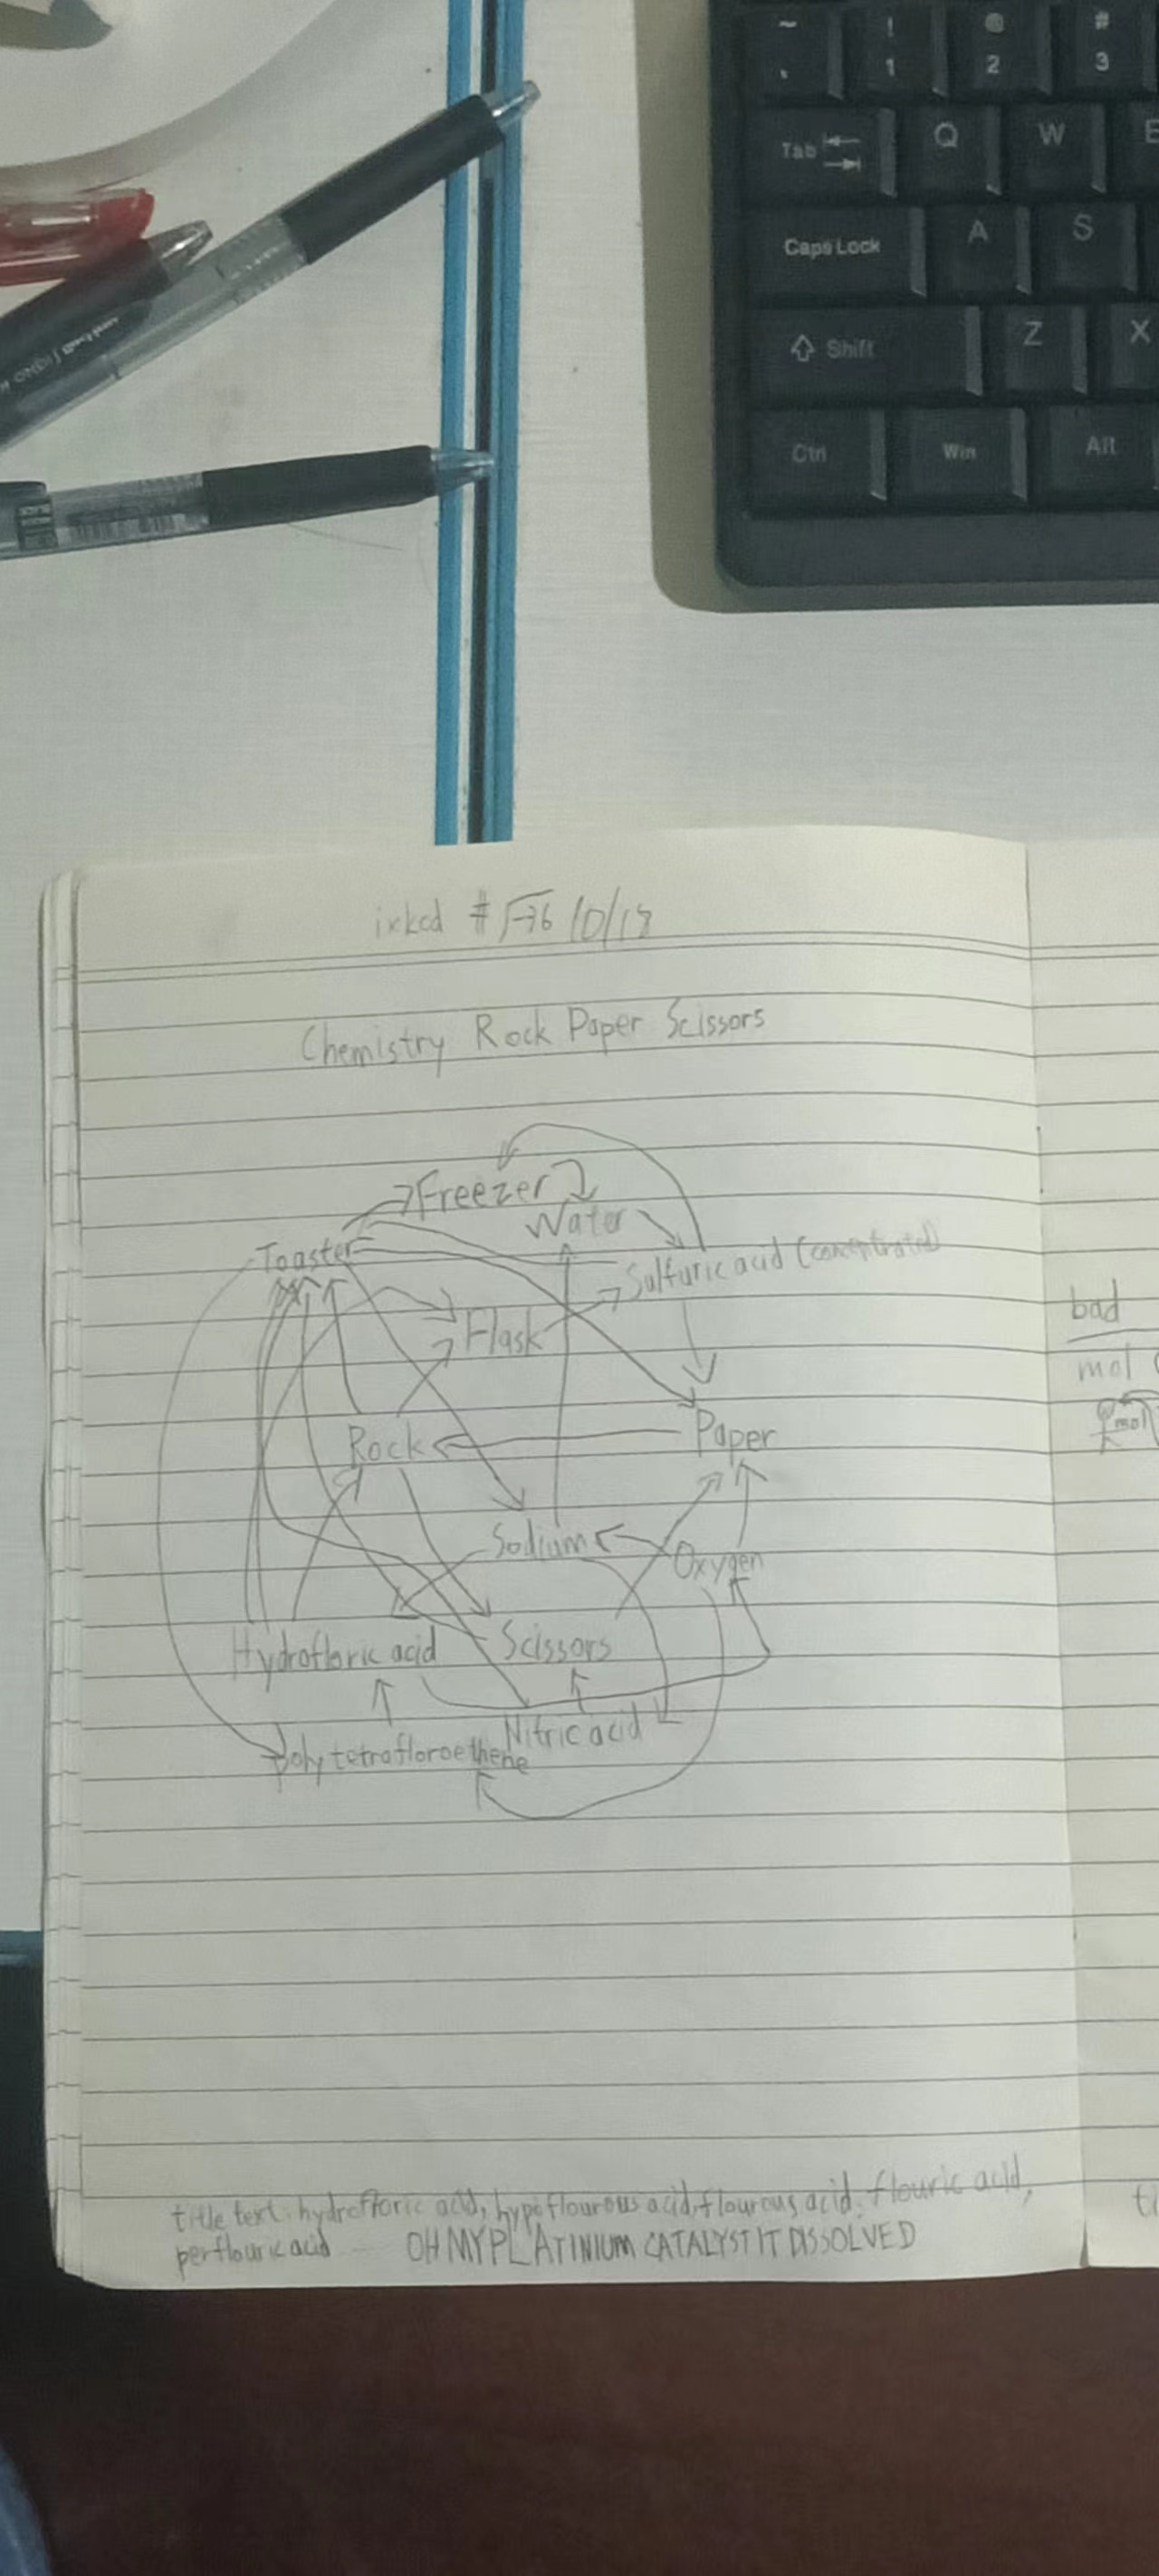 ~ ! @ #
` 1 2 3
Tab Q W E
Caps Lock A S
Shift Z X
Ctrl Win Alt
ixkcd # √-36 10/18
Chemistry Rock Paper Scissors
Freezer
Water
Toaster
Sulfuric acid (concentrated)
Flask
Rock
Paper
Sodium
Oxygen
Hydrofloric acid
Scissors
Nitric acid
polytetrafloroethene
bad
mol
mol
title text: hydrofloric acid, hypoflourous acid, flourous acid, flouric acid,
perflouric acid OH MY PLATINIUM CATALYST IT DISSOLVED
ti